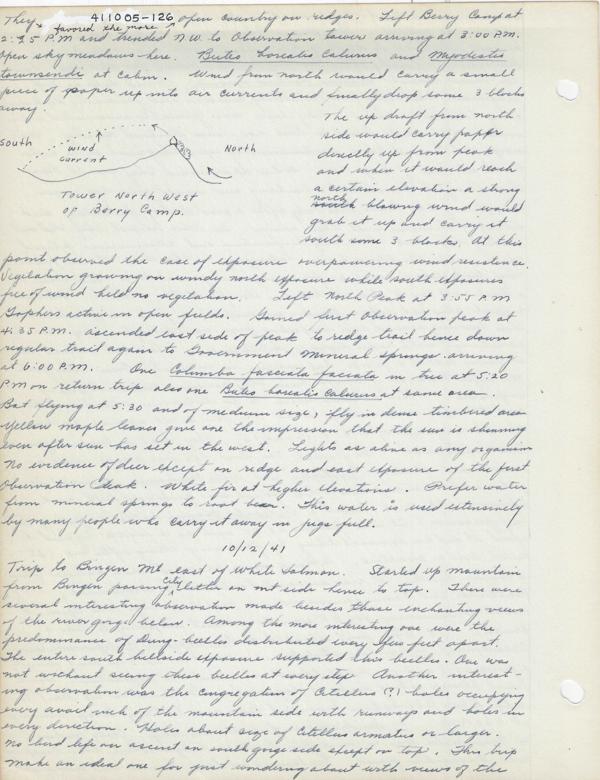 411005-126
They favored the more open country on ridges. Left Berry Camp at
2:25 P.M and trended N.W. to Observation tower arriving at 3:00 P.M.
Open sky meadows here. Buteo borealis calurus and Myodestes
townsendi at cabin. Wind from north would carry a small
piece of paper up into air currents and finally drop some 3 blocks
away.
South
wind
current
North
Tower North West
of Berry Camp.
The up draft from north
side would carry paper
directly up from peak
and when it would reach
a certain elevation a strong
north blowing wind would
grab it up and carry it
south some 3 blocks. At this
point observed the case of exposure overpowering wind resistence.
Vegetation growing on windy north exposure while south exposures
free of wind held no vegetation. Left North Peak at 3:55 P.M
Gophers active in open fields. Gained first Observation peak at
4:35 P.M. ascended east side of peak to ridge trail hence down
regular trail again to Government Mineral Springs arriving
at 6:00 P.M. One Columba fasciata fasciata in tree at 5:20
PM on return trip also one Buteo borealis calurus at same area.
Bat flying at 5:30 and of medium size, fly in dense timbered area
Yellow maple leaves give one the impression that the sun is shinning
even after sun has set in the west. Lights as alive as any organism
No evidence of deer except on ridge and east exposure of the first
Observation Peak. White fir at higher elevations. Prefer water
from mineral springs to root beer. This water is used extensively
by many people who carry it away in jugs full.
10/12/41
Trip to Bingen Mt east of White Salmon. Started up mountain
from Bingen passing city letter on mt side hence to top. There were
several interesting observation made besides those enchanting views
of the river gorge below. Among the more interesting one were the
predominance of Dung-beetles distributed every few feet apart.
The entire south hillside exposure supported this beetles. One was
not without seeing these beetles at every step Another interest-
ing observation was the congregation of Citellus (?) holes occupying
every avail inch of the mountain side with runways and holes in
every direction. Holes about size of Citellus armatus or larger.
No bird life on ascent on south gorge side except on top. This trip
make an ideal one for just wondering about with views of the